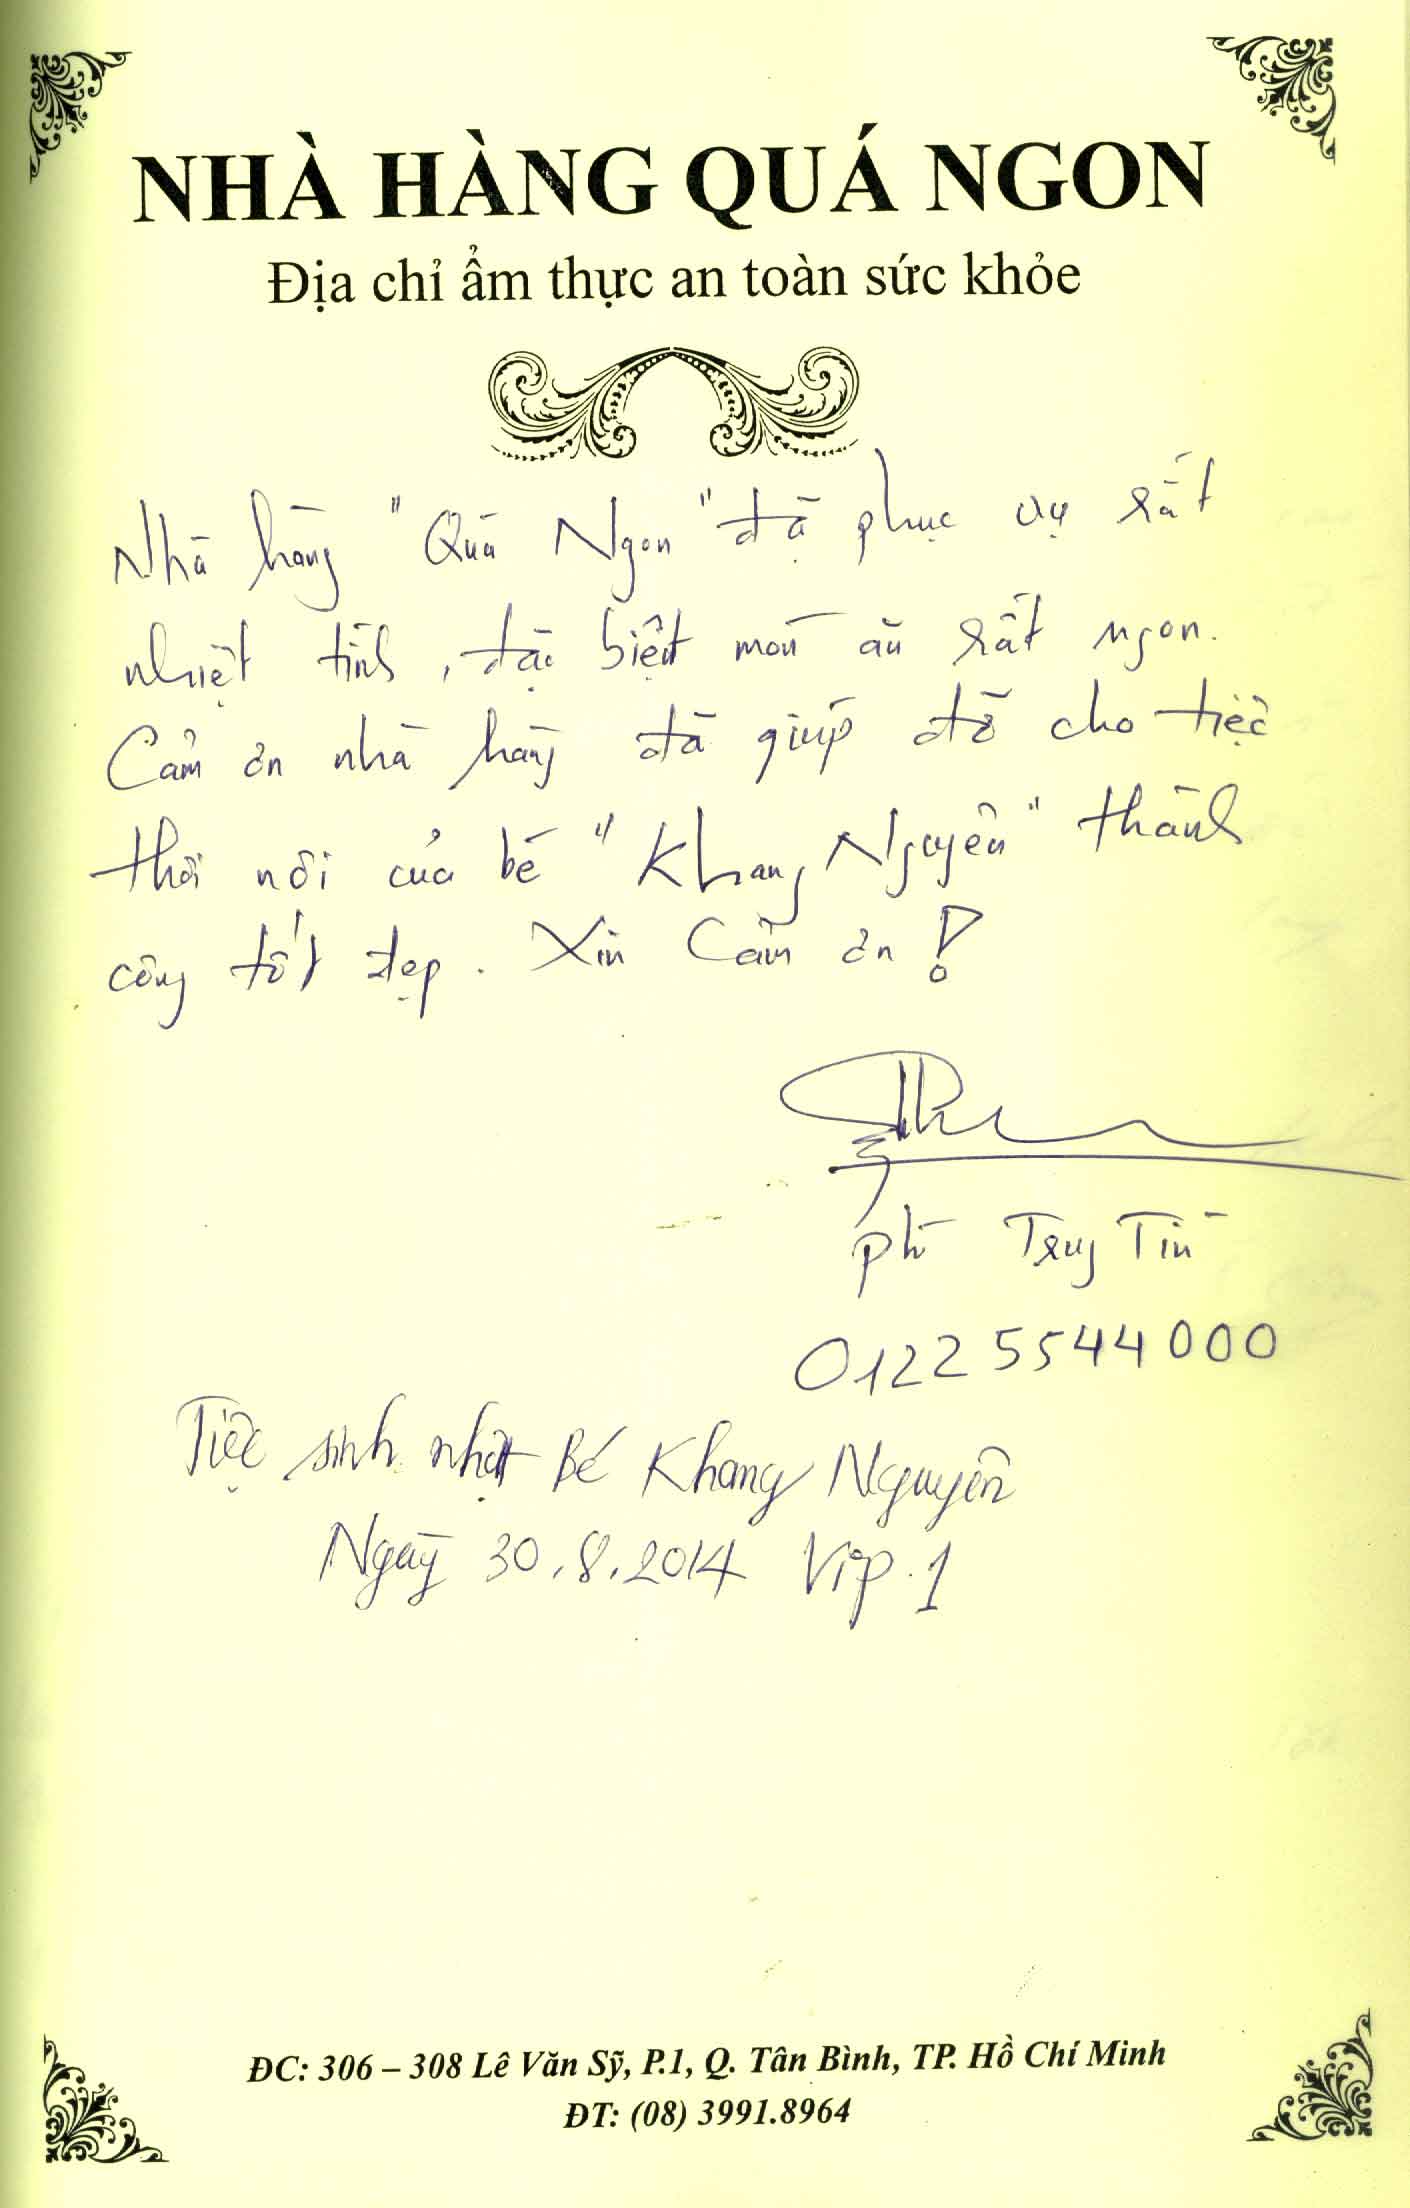 NHÀ HÀNG QUÁ NGON
Địa chỉ ẩm thực an toàn sức khỏe
Nhà hàng "Quá Ngon" đã phục vụ rất
nhiệt tình, đặc biệt món ăn rất ngon.
Cảm ơn nhà hàng đã giúp đỡ cho tiệc
thôi nôi của bé "Khang Nguyên" thành
công tốt đẹp. Xin Cảm ơn!
Tín
01225544000
Tiệc sinh nhật Bé Khang Nguyên
Ngày 30.8.2014 Vip.1
ĐC: 306 – 308 Lê Văn Sỹ, P.1, Q. Tân Bình, TP. Hồ Chí Minh
ĐT: (08) 3991.8964